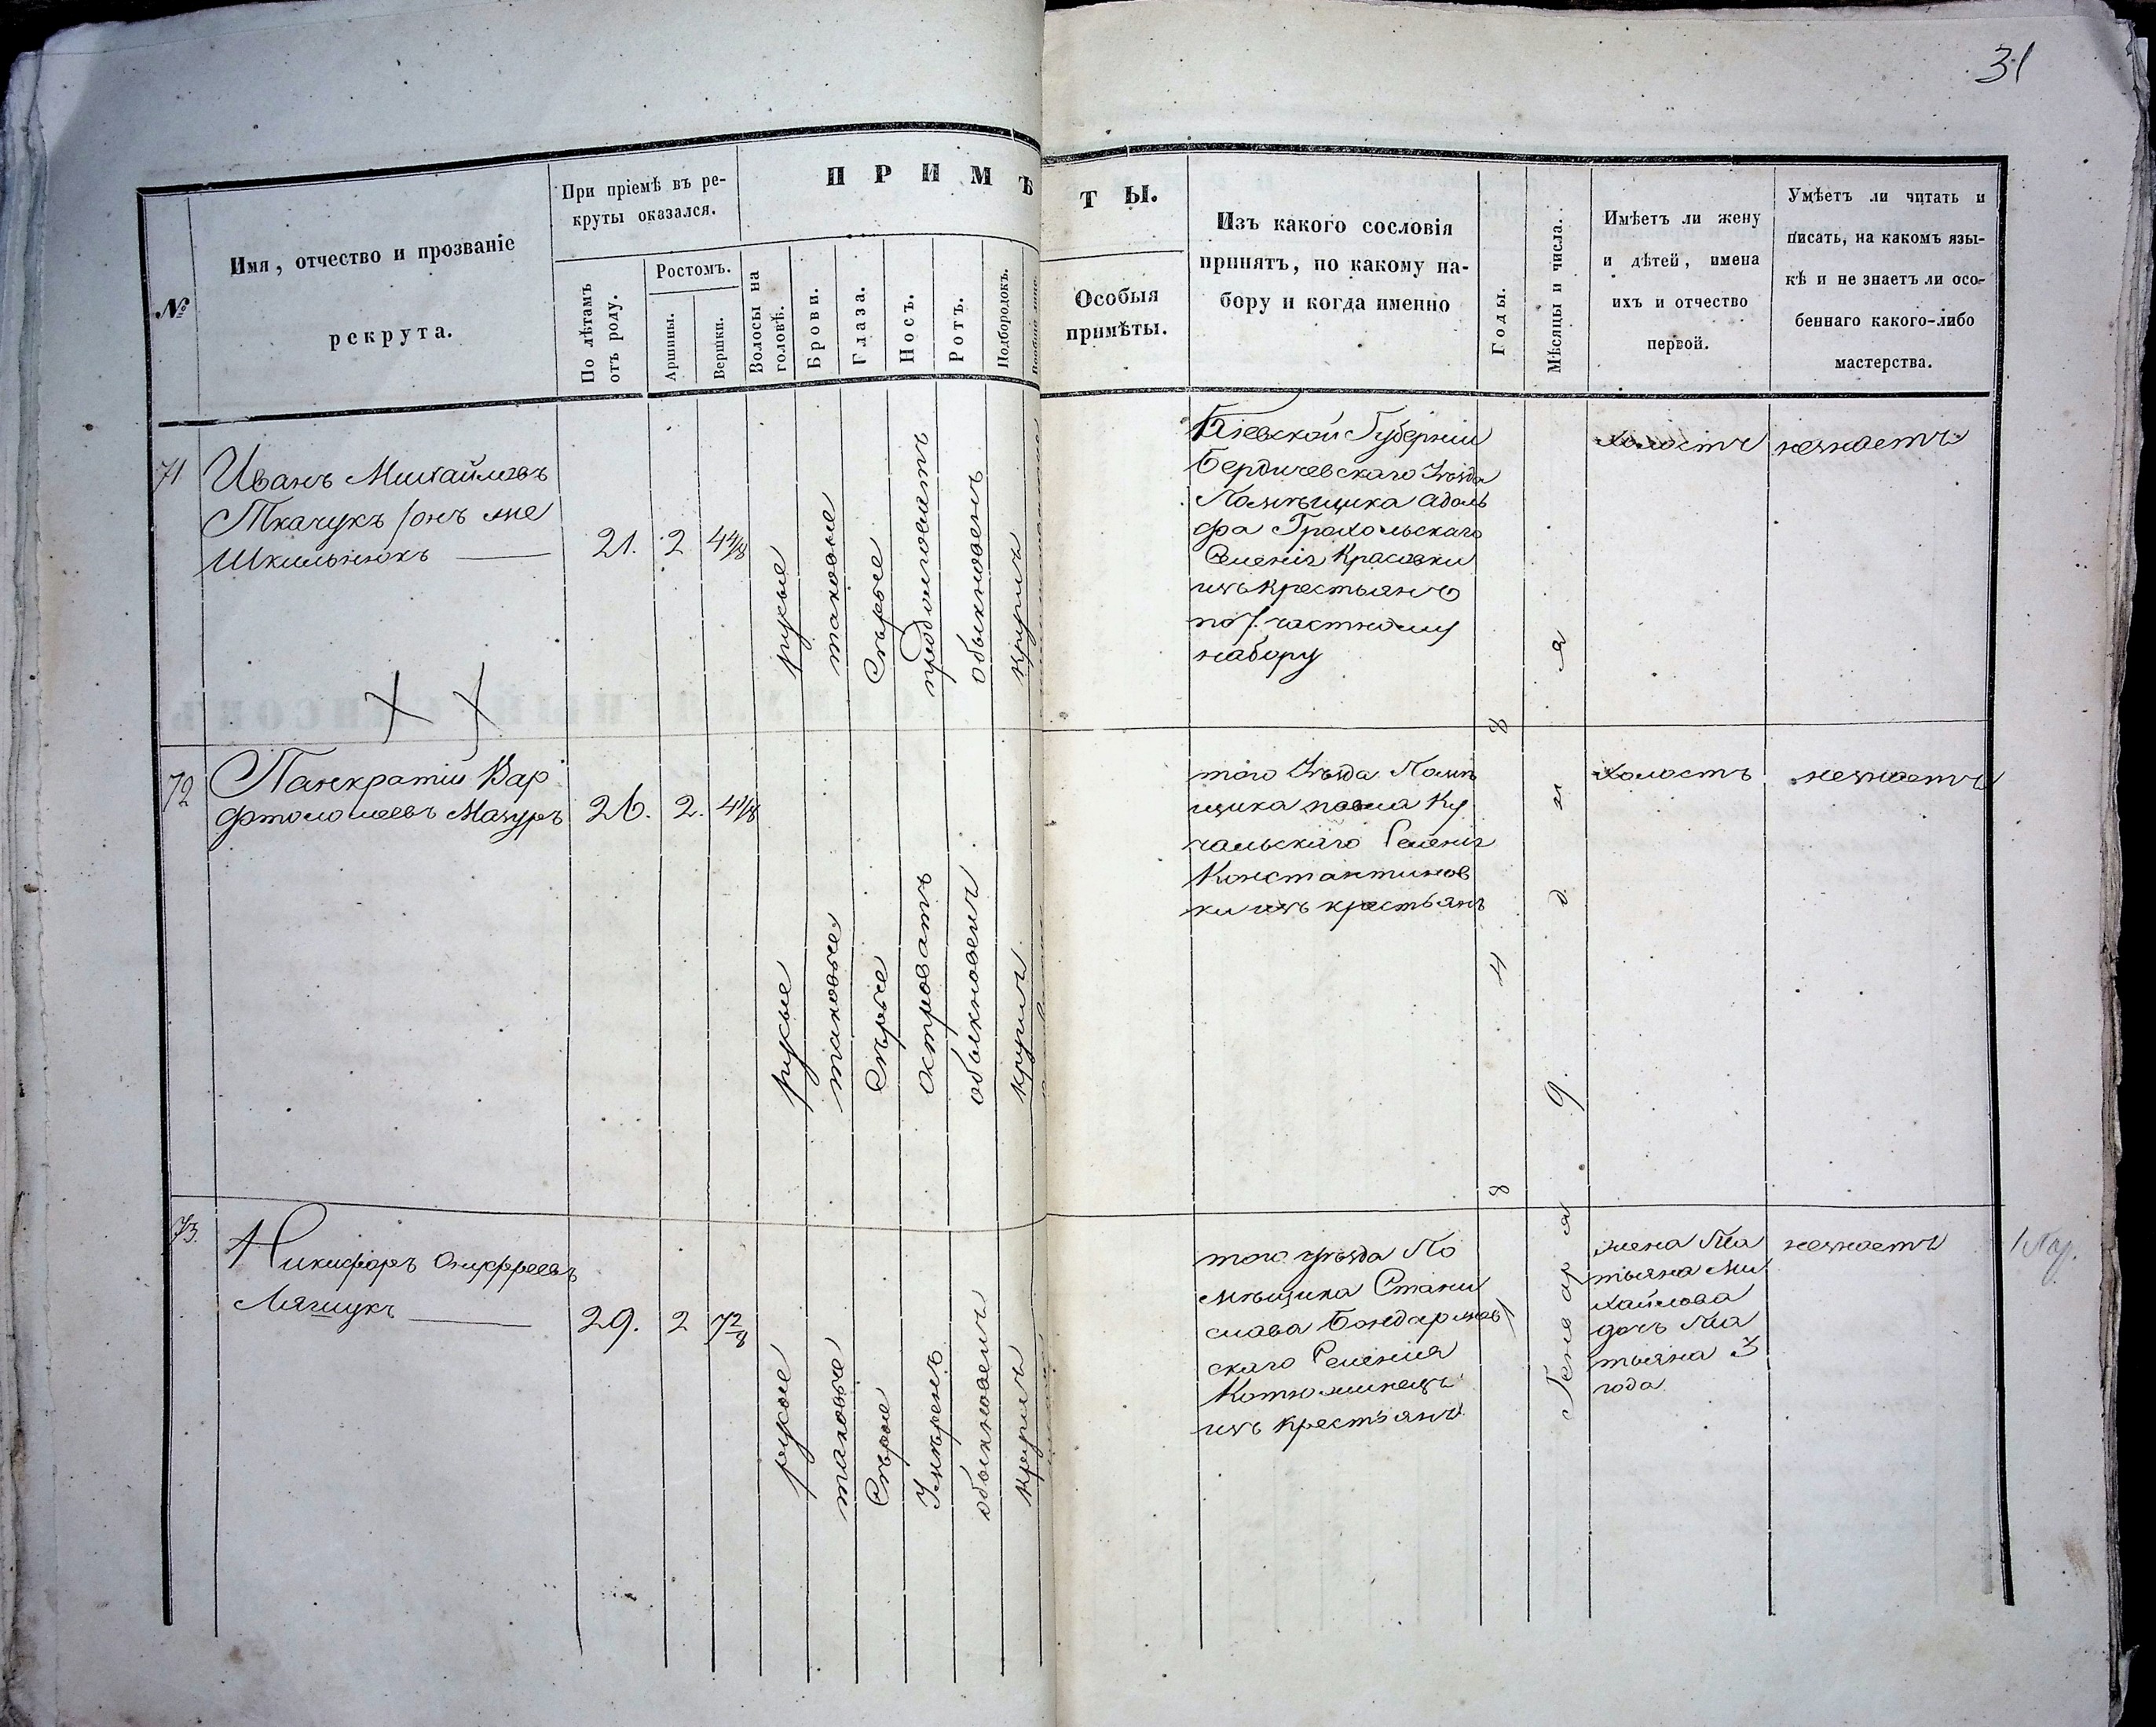 31
№
Имя, отчество и прозваніе
рекрута.
При пріемѣ въ ре-
круты оказался.
По лѣтамъ
отъ роду.
Ростомъ.
Аршины.
Вершки.
ПРИМѢ
ТЫ.
Волосы на
головѣ.
Брови.
Глаза.
Носъ.
Ротъ.
Подбородокъ.
Особыя
примѣты.
Изъ какого сословія
принятъ, по какому на-
бору и когда именно
Годы.
Мѣсяцы и числа.
Имѣетъ ли жену
и дѣтей, имена
ихъ и отчество
первой.
Умѣетъ ли читать и
писать, на какомъ язы-
кѣ и не знаетъ ли осо-
беннаго какого-либо
мастерства.
71
Иванъ Михайловъ
Ткачукъ /онъ же
Шкильнюкъ
21.
2
4 4/8
русые
таковые
Сѣрые
продолговатъ
обыкновенъ
круглъ
Кіевской Губерніи
Бердичевскаго Уѣзда
Помѣщика Адоль
фа Грохольскаго
Селенія Красовки
изъ крестьянъ
по / частному
набору
Холостъ
незнаетъ
72
Панкратій Вар
фтоломеевъ Мазуръ
26.
2.
4 1/8
русые
таковые
Сѣрые
островатъ
обыкновенъ
круглъ
того Уѣзда Помѣ
щика Павла Ку
чальскаго Селенія
Константинов
ки изъ крестьянъ
Холостъ
незнаетъ
73.
Никифоръ Онуфреевъ
Лящукъ
29.
2
7 2/8
русые
таковые
Сѣрые
Умѣренъ
обыкновенъ
круглъ
того уѣзда По
мѣщика Стани
слава Бондарков
скаго Селенія
изъ крестьянъ
жена Та
тьяна Ми
хайлова
дочь Та
тьяна 3
года
незнаетъ
8 4 8
Генваря 9 дня